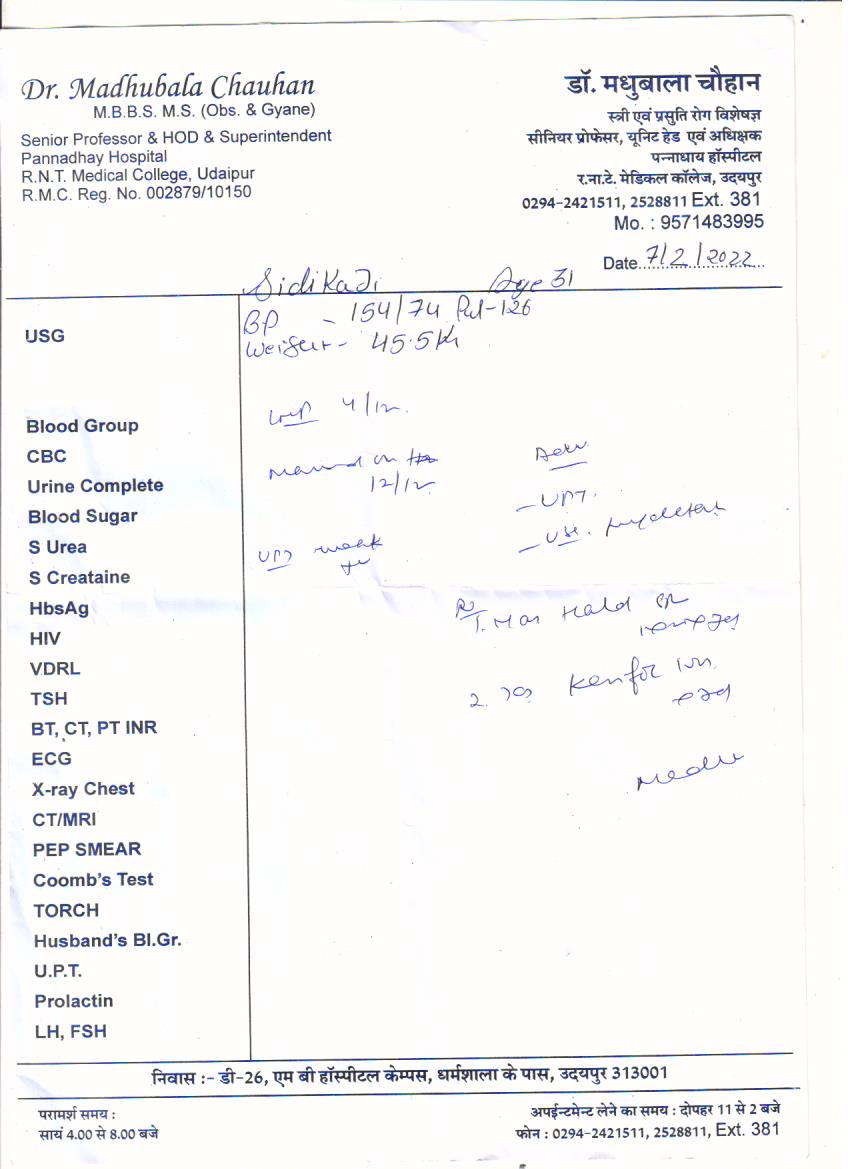 Dr. Madhubala Chauhan
M.B.B.S. M.S. (Obs. & Gyane)
Senior Professor & HOD & Superintendent
Pannadhay Hospital
R.N.T. Medical College, Udaipur
R.M.C. Reg. No. 002879/10150
डॉ. मधुबाला चौहान
स्त्री एवं प्रसुति रोग विशेषज्ञ
सीनियर प्रोफेसर, यूनिट हेड एवं अधिक्षक
पन्नाधाय हॉस्पीटल
र.ना.टे. मेडिकल कॉलेज, उदयपुर
0294-2421511, 2528811 Ext. 381
Mo. : 9571483995
Date 7/2/2022
Age 31
BP - 154/74 Pul-126
45.5
USG
4/12.
12/12
UPT.
UPT weak
Blood Group
CBC
Urine Complete
Blood Sugar
S Urea
S Creataine
HbsAg
HIV
VDRL
TSH
BT, CT, PT INR
ECG
X-ray Chest
CT/MRI
PEP SMEAR
Coomb's Test
TORCH
Husband's Bl.Gr.
U.P.T.
Prolactin
LH, FSH
निवास :- डी-26, एम बी हॉस्पीटल केम्पस, धर्मशाला के पास, उदयपुर 313001
परामर्श समय :
सायं 4.00 से 8.00 बजे
अपईन्टमेन्ट लेने का समय : दोपहर 11 से 2 बजे
फोन : 0294-2421511, 2528811, Ext. 381